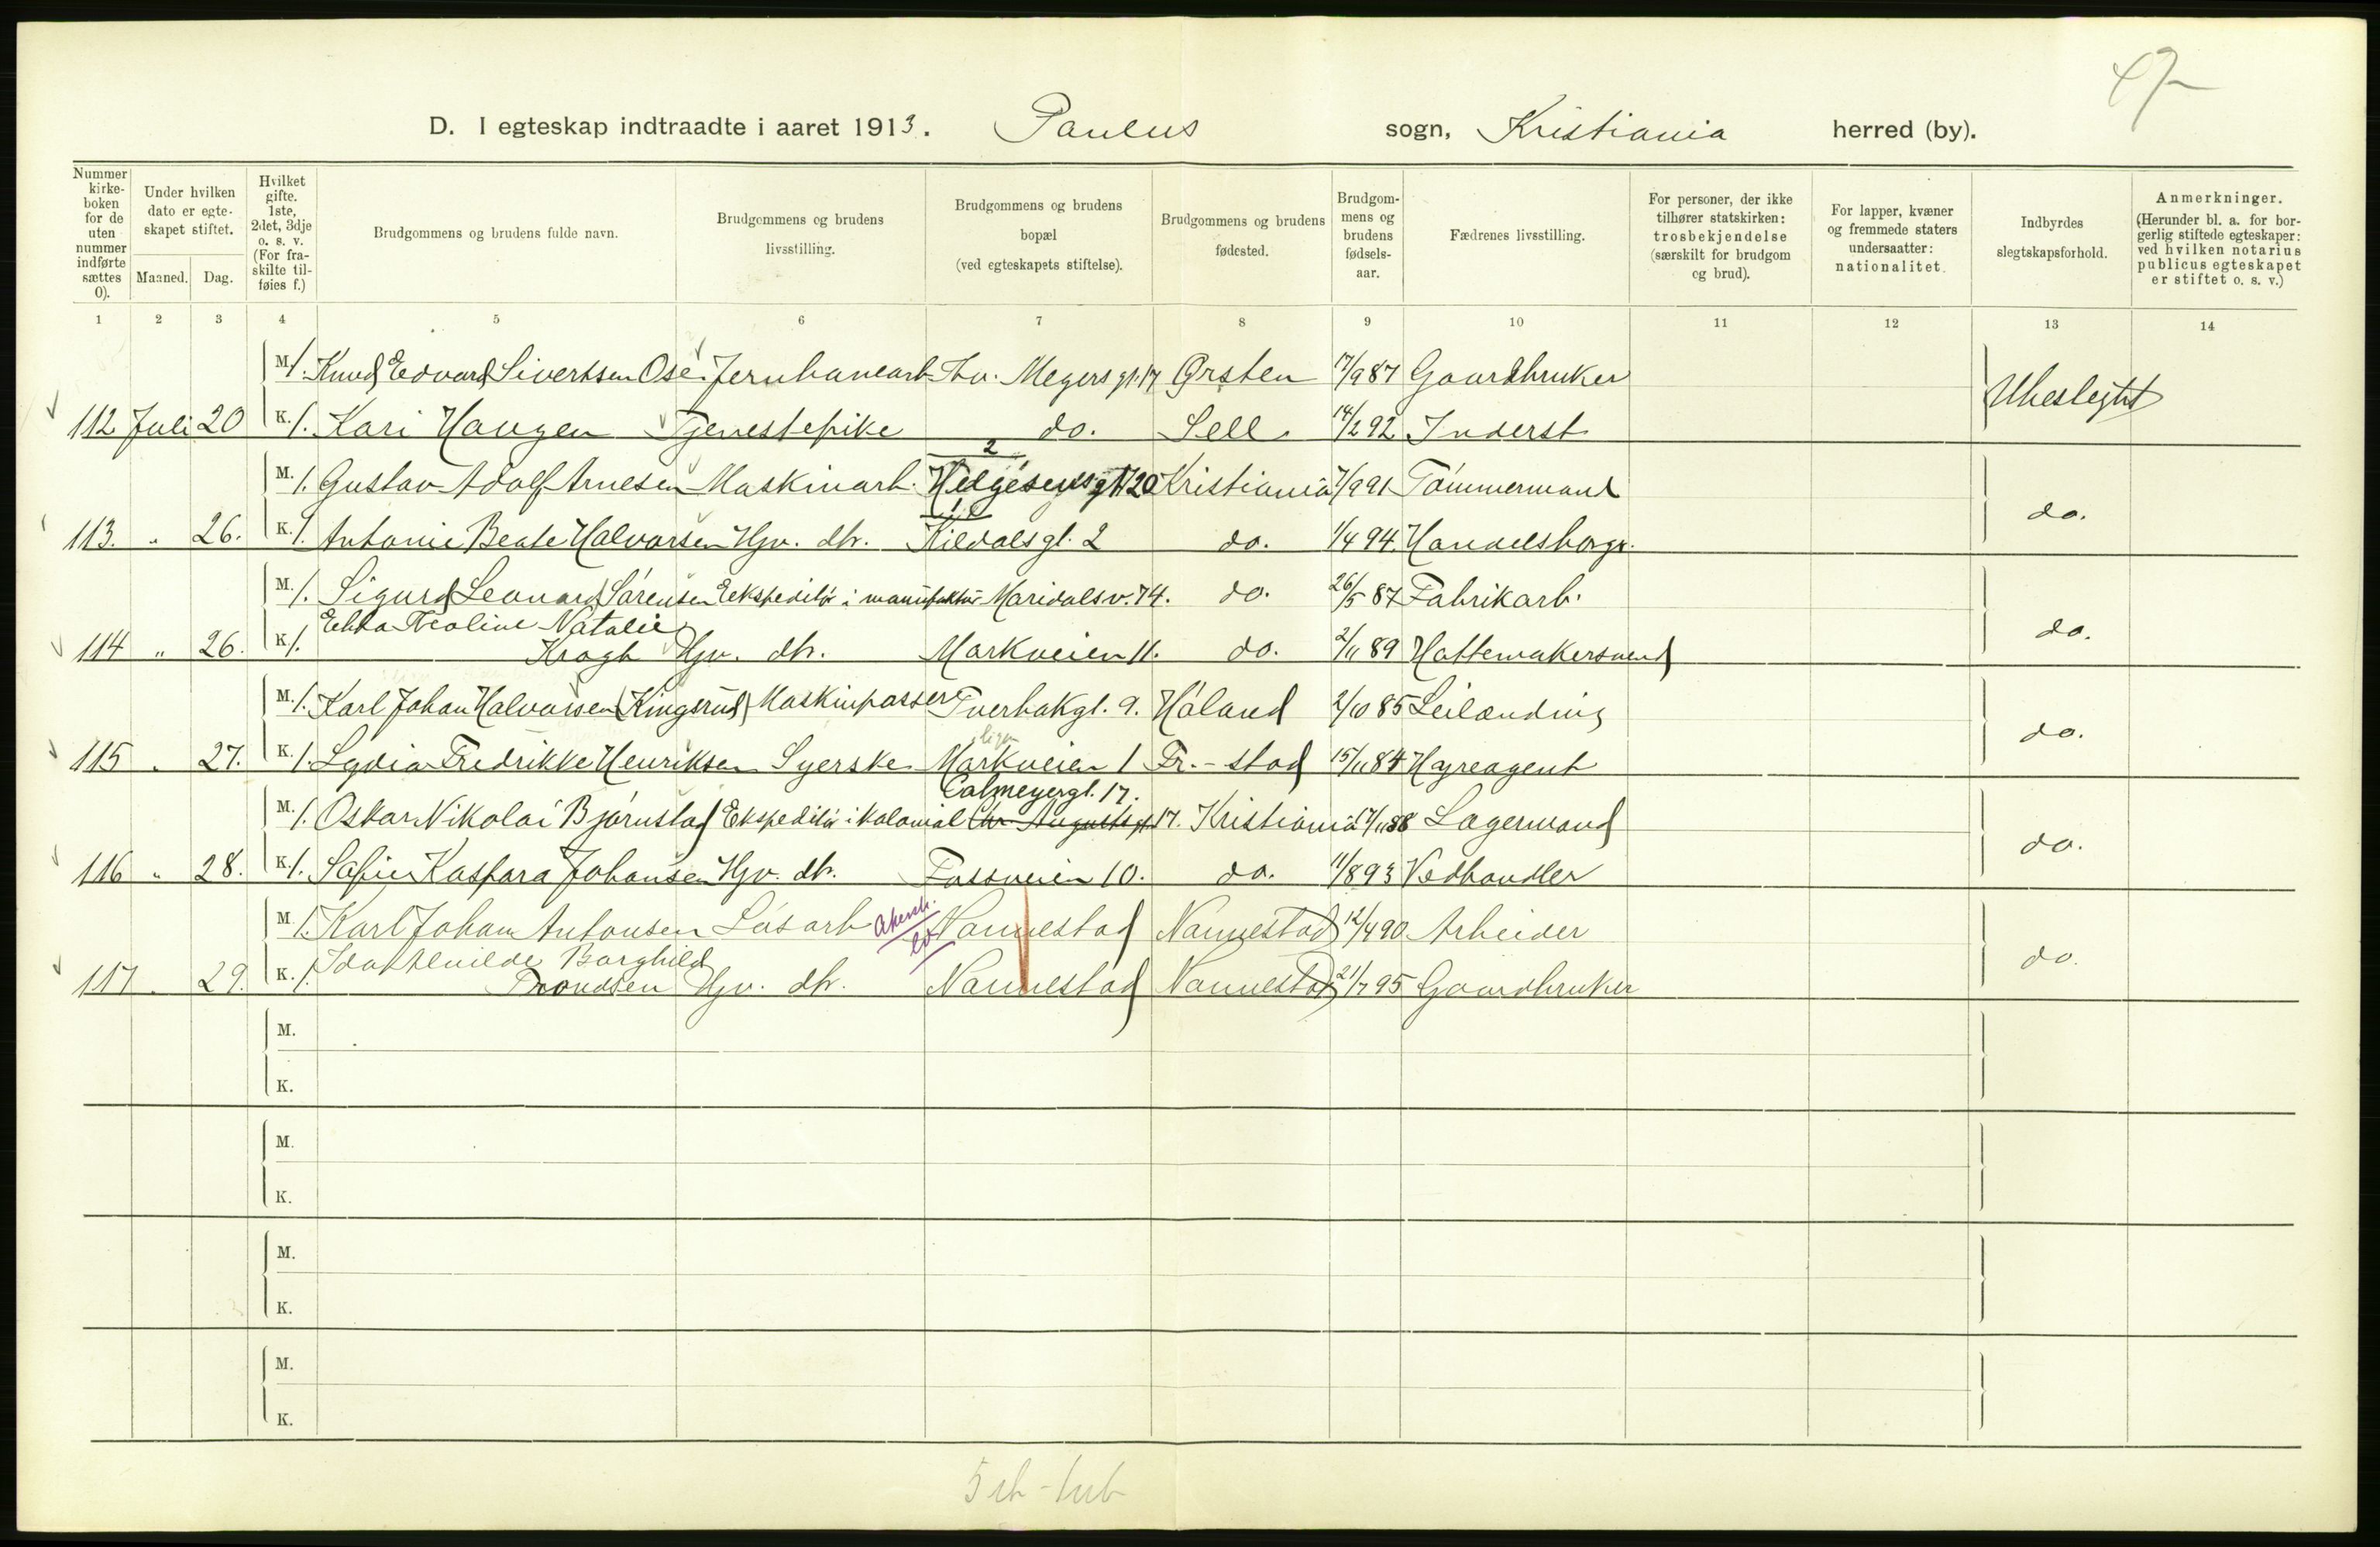 D. I egteskap indtraadte i aaret 1913. Paulus sogn, Kristiania herred (by).
Nummer kirkeboken for de uten nummer indførte sættes 0).
Under hvilken dato er egteskapet stiftet.
Maaned. Dag.
Hvilket gifte. 1ste, 2det, 3dje o. s. v. (For fraskilte tilføies f.)
Brudgommens og brudens fulde navn.
Brudgommens og brudens livsstilling.
Brudgommens og brudens bopæl (ved egteskapets stiftelse).
Brudgommens og brudens fødested.
Brudgommens og brudens fødselsaar.
Fædrenes livsstilling.
For personer, der ikke tilhører statskirken: trosbekjendelse (særskilt for brudgom og brud).
For lapper, kvæner og fremmede staters undersaatter: nationalitet.
Indbyrdes slegtskapsforhold.
Anmerkninger. (Herunder bl. a. for borgerlig stiftede egteskaper: ved hvilken notarius publicus egteskapet er stiftet o. s. v.)
1 2 3 4 5 6 7 8 9 10 11 12 13 14
M. 1. Knud Edvard Sivertsen Ose Jernbanearb. Thv. Meyers gt. 17 Ørsten 17/9 87 Gaardbruker
112 Juli 20 K. 1. Kari Haugen Tjenestepike do. Sell 14/2 92 Inderst Ubeslegtet
M. 1. Gustav Adolf Arnesen Maskinarb. Helgesensgt. 20 Kristiania 7/9 91 Tømmermand
113. " 26. K. 1. Antonie Beate Halvorsen Hjv. dtr. Kildalsgt. 2 do. 1/4 94. Handelsborger. do.
M. 1. Sigurd Leonard Sørensen Eekspeditør i manufaktur Maridalsv. 74. do. 26/5 87 Fabrikarb.
Ebba Nicoline Natalie
114 " 26. K. 1. Krogh Hjv. dtr. Markveien 11. do. 2/11 89 Hattemakersvend do.
M. 1. Karl Johan Halvorsen (Kingsrud) Maskinpasser Tverbakgt. 9. Høland 2/10 85 Leilænding
115 " 27. K. 1. Lydia Fredrikke Henriksen Syerske Markveien 1 Fr.-stad 15/11 84 Hyreagent do.
Calmeyergt. 17.
M. 1. Oskar Nikolai Bjørnstad Ekspeditør i kolonial Chr. Augustsgt. 17. Kristiania 17/11 88 Lagermand
116 " 28. K. 1. Sofie Kaspara Johansen Hjv. dtr. Fossveien 10. do. 11/8 93 Vedhandler do.
M. 1. Karl Johan Antonsen Løsarb. Akersh. Nannestad Nannestad 12/4 90 Arbeider
Borghild
117 " 29. K. 1. Trondsen Hjv. dtr. Nannestad Nannestad 21/7 95 Gaardbruker do.
M.
K.
M.
K.
M.
K.
M.
K.